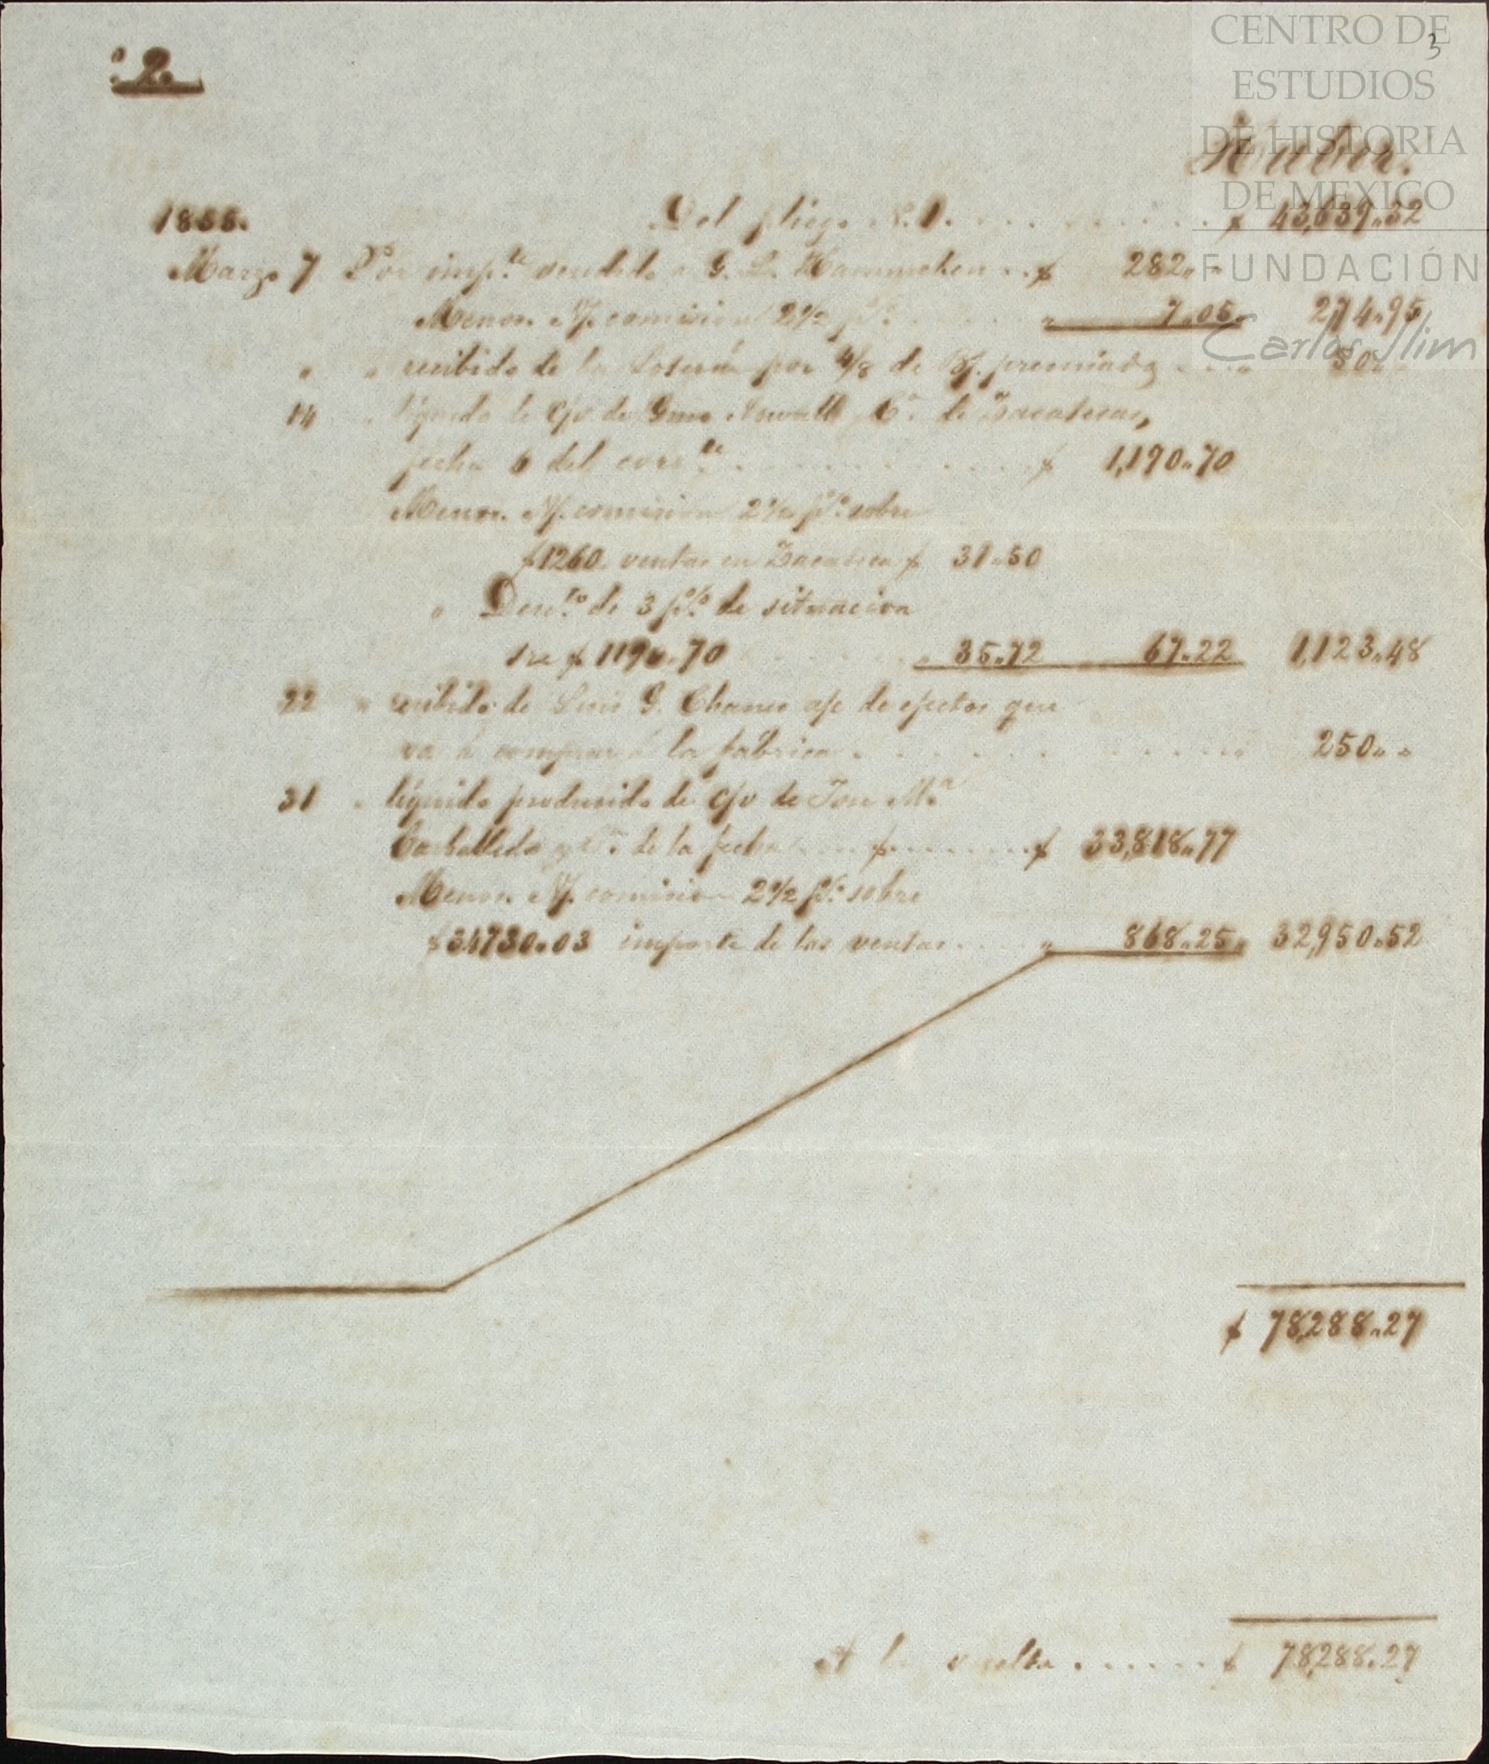 2.
3
CENTRO DE
ESTUDIOS
DE HISTORIA
DE MEXICO
FUNDACIÓN
Carlos Slim
Haber.
1855. Del pliego N. 1. $ 43,639.32
Marzo 7 Por imp.te vendido a G. L. Hammeken $ 282..
Menos. N/. comision 2 1/2 p.% 7.05. 274.95
" " recibido de la Loteria por 4/8 de premiado 50..
14 " liquido de c/v de Gmo de Zacatecas,
fecha 6 del corr.te $ 1,190.70
Menos. N/. comision 2 1/2 p.% sobre
$1260. ventas en Zacatecas $ 31.50
" Desc.to de 3 p.% de situacion
sre $ 1190.70 " 35.72 67.22 1,123.48
22 " recibido de Luis G. Chavez a/c de efectos que
va á comprar á la fabrica 250..
31 " liquido producido de c/v de Jose M.a
Carballeda y C.a de la fecha $ 33,818.77
Menos. N/. comision 2 1/2 p.% sobre
$34730.03 importe de las ventas " 868.25. 32,950.52
$ 78,288.27
A la vuelta $ 78,288.27